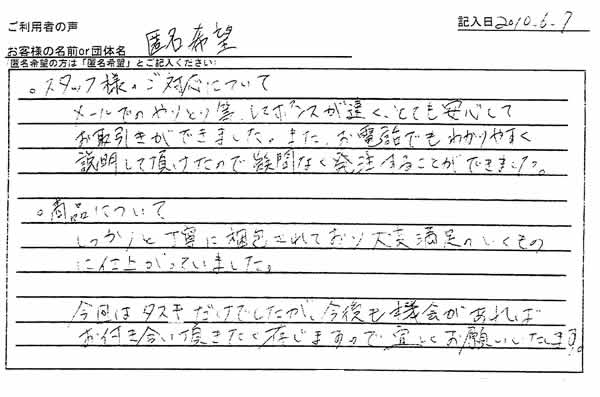 ご利用者の声
記入日 2010.6.7
お客様の名前or団体名 匿名希望
(匿名希望の方は「匿名希望」とご記入ください)
○スタッフ様のご対応について
メールでのやりとり等、レスポンスが速く、とても安心して
お取引きができました。また、お電話でもわかりやすく
説明して頂けたので疑問なく発注することができました。
○商品について
しっかりと丁寧に梱包されており大変満足のいくもの
に仕上がっていました。
今回はタスキだけでしたが、今後も機会があれば
お付き合い頂きたく存じますので宜しくお願いいたします。